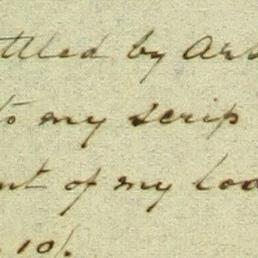 ttled by Arb
to my scrip
nt of my loa
10/.